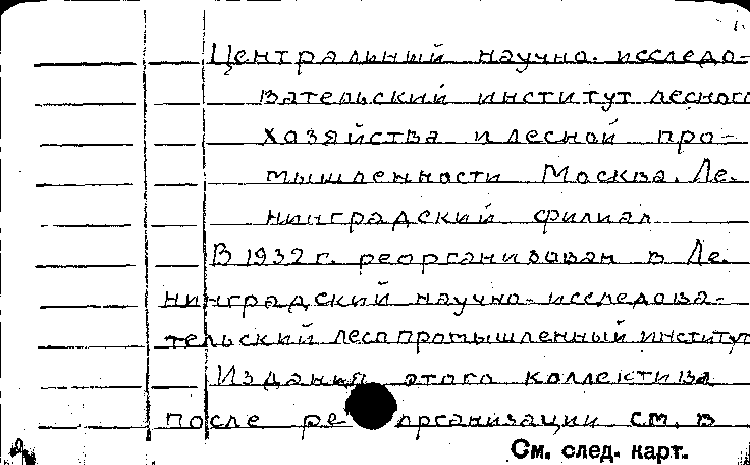 Центральный научно-исследо-
вательский институт лесного
хозяйства и лесной про-
мышленности Москва. Ле-
нинградский филиал
В 1932 г. реорганизован в Ле-
нинградский научно-исследова-
тельский леспромышленный институт
Издания этого коллектива
после реорганизации см. в
См. след. карт.